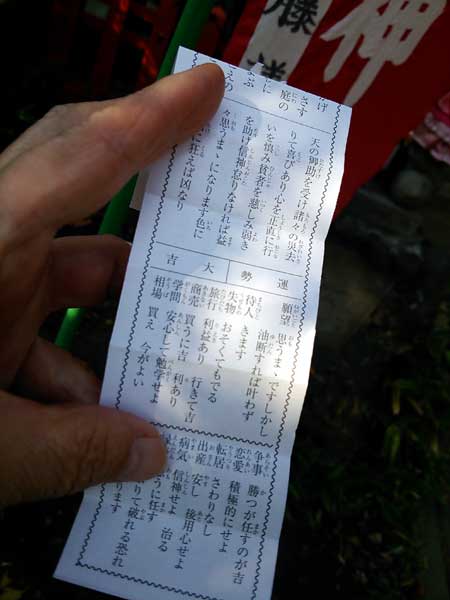 神
藤
さす
庭の
天の御助を受け諸々の災去
りて喜びあり心を正直に行
いを慎み貧者を慈しみ弱き
を助け信神怠りなければ益
々思うまゝになります色に
に狂えば凶なり
運勢
大吉
願望 思うまゝですしかし
油断すれば叶わず
待人 きます
失物 おそくてもでる
旅行 利益あり 行きて吉
商売 買うに吉 利あり
学問 安心して勉学せよ
相場 買え 今がよい
争事 勝つが任すのが吉
恋愛 積極的にせよ
転居 さわりなし
出産 安し 後用心せよ
病気 信神せよ 治る
うに任す
りて破れる恐れ
ります